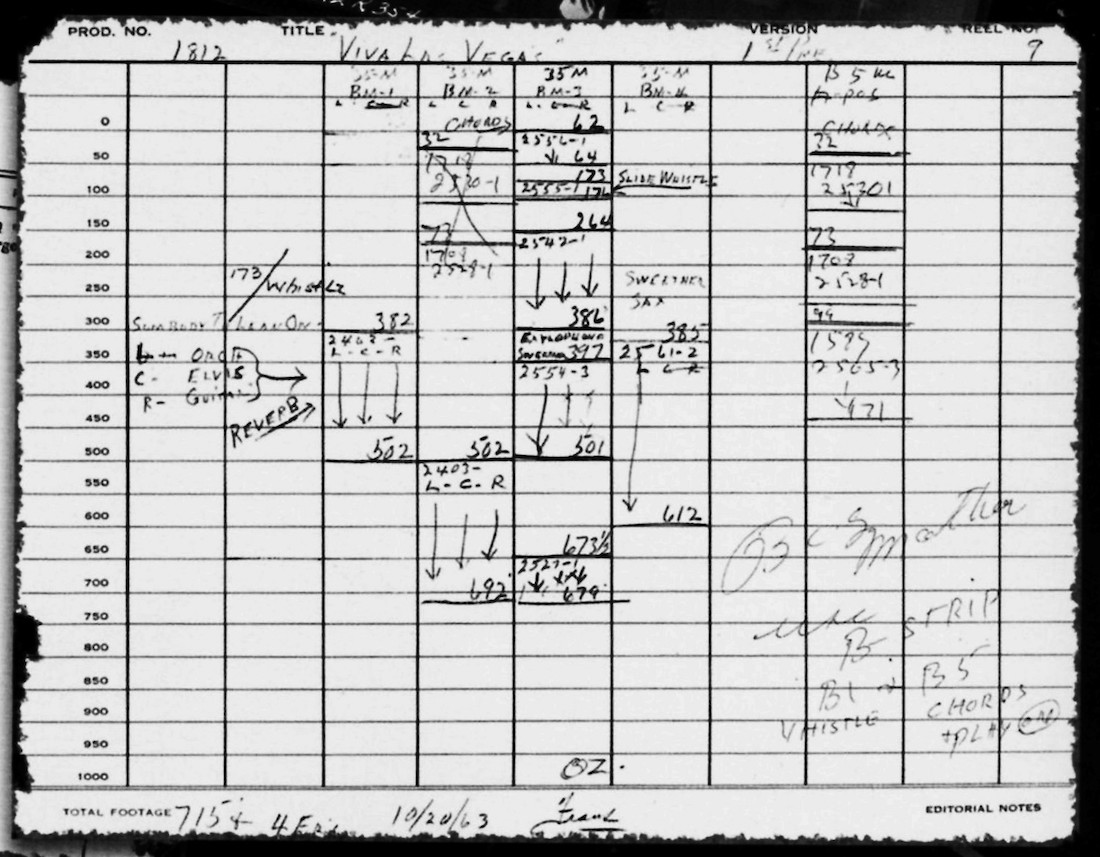 PROD. NO. 1812 TITLE "VIVA LAS VEGAS" VERSION 1st REEL NO. 9
35-M 35-M 35M 35-M B5
BM-1 BM-2 BM-3
L C R L C R L C R L C R
0 CHORDS 62 CHORDS
32 2556-1 32
50 64
1718 173 SLIDE WHISTLE 1718
100 2530-1 2555-1 25301
150 264
73 2542-1 73
200 1708 1708
2528-1 2528-1
250 173/WHISTLE SWEETNER
SAX
300 SOMEBODY TO LEAN ON- 382 386 385 99
350 L- ORCH 2403- 397 2561-2 1595
L-C-R L C R
C- ELVIS 2554-3 2565-3
400 R- GUITAR
REVERB 471
450
500 502 502 501
2403-
550 L-C-R
600 612
650 673½
2527-1
700 692 679
750
800
850
900
950
1000
OZ.
USE
B STRIP
B1 & B5
WHISTLE CHORDS
+PLAY OK
TOTAL FOOTAGE 715+ 10/20/63 Frank EDITORIAL NOTES